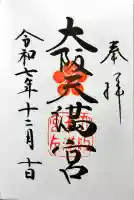 奉拝
大阪天満宮
令和七年十二月十日